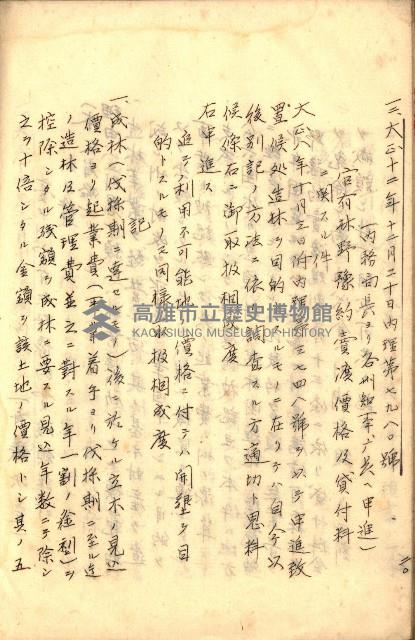 一三、大正十二年十二月二十日內理第七九八〇號
（內務局長ヨリ各州知事、廳長ヘ申進）
官有林野豫約賣渡價格及貸付料
ニ關スル件
大正八年十月三日附內 七四八號ヲ以テ申進致
置候処造林ヲ目的 ルモノニ在リテハ自今以
後別記ノ方法ニ依リ調查スル方適切ト思料
候條右ニ御取扱相成度
右申進ス
追テ利用不可能地ノ價格ニ付テハ開墾ヲ目
的トスルモノモ同樣御取扱相成度
記
一、成林（伐採期ニ達セ ）後ニ於ケル立木ノ見込
價格ヨリ起業費（事業着手ヨリ伐採期ニ至ル迄
ノ造林及管理費並之ニ對スル年一割ノ金利）ヲ
控除シタル殘額ヲ成林ニ要スル見込年數ニテ除シ
之ヲ十倍シタル金額ヲ該土地ノ價格トシ其ノ五
二〇
高雄市立歷史博物館
KAOHSIUNG MUSEUM OF HISTORY